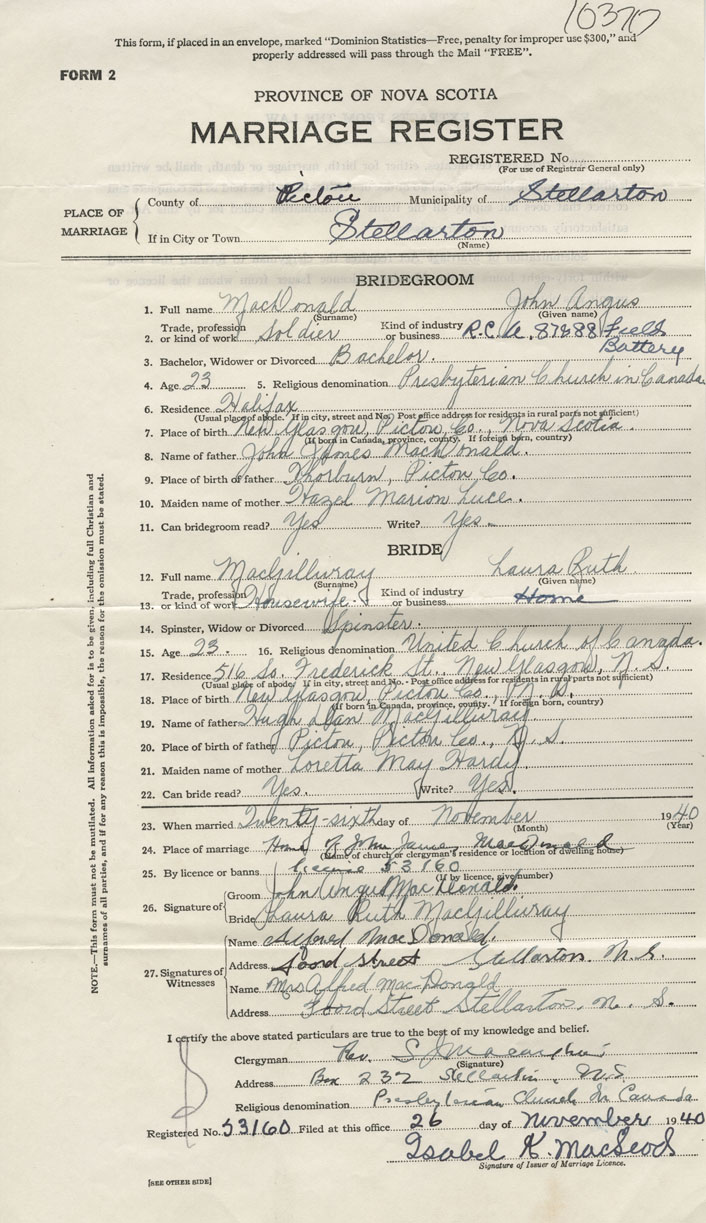 10377
This form, if placed in an envelope, marked "Dominion Statistics—Free, penalty for improper use $300," and
properly addressed will pass through the Mail "FREE".
FORM 2
PROVINCE OF NOVA SCOTIA
MARRIAGE REGISTER
REGISTERED No.
(For use of Registrar General only)
PLACE OF MARRIAGE
County of Pictou Municipality of Stellarton
If in City or Town Stellarton
(Name)
BRIDEGROOM
1. Full name MacDonald John Angus
(Surname) (Given name)
2. Trade, profession or kind of work Soldier Kind of industry or business R.C.A. 87688 Field Battery
3. Bachelor, Widower or Divorced Bachelor.
4. Age 23 5. Religious denomination Presbyterian Church in Canada
6. Residence Halifax
(Usual place of abode. If in city, street and No. Post office address for residents in rural parts not sufficient)
7. Place of birth New Glasgow, Pictou Co., Nova Scotia.
(If born in Canada, province, county. If foreign born, country)
8. Name of father John James MacDonald.
9. Place of birth of father Thorburn, Pictou Co.
10. Maiden name of mother Hazel Marion Luce.
11. Can bridegroom read? Yes Write? Yes.
BRIDE
12. Full name MacGillivray Laura Ruth
(Surname) (Given name)
13. Trade, profession or kind of work Housewife. Kind of industry or business Home
14. Spinster, Widow or Divorced Spinster.
15. Age 23. 16. Religious denomination United Church of Canada.
17. Residence 516 So. Frederick St., New Glasgow, N.S.
(Usual place of abode. If in city, street and No. - Post office address for residents in rural parts not sufficient)
18. Place of birth New Glasgow, Pictou Co., N.S.
(If born in Canada, province, county. If foreign born, country)
19. Name of father Hugh Alan MacGillivray
20. Place of birth of father Pictou, Pictou Co., N.S.
21. Maiden name of mother Loretta May Hardy
22. Can bride read? Yes. Write? Yes.
23. When married Twenty-sixth day of November 1940
(Month) (Year)
24. Place of marriage Home of John James MacDonald
(Name of church or clergyman's residence or location of dwelling house)
25. By licence or banns licence 53160
(If by licence, give number)
26. Signature of
Groom John Angus MacDonald.
Bride Laura Ruth MacGillivray
27. Signatures of Witnesses
Name Alfred MacDonald.
Address Foord Street Stellarton N.S.
Name Mrs Alfred MacDonald
Address Foord Street Stellarton, N. S.
I certify the above stated particulars are true to the best of my knowledge and belief.
Clergyman Rev.
(Signature)
Address Box 237 Stellarton, N.S
Religious denomination Presbyterian Church In Canada
Registered No. 53160 Filed at this office 26 day of November 1940
Isabel K. MacLeod
Signature of Issuer of Marriage Licence.
[SEE OTHER SIDE]
NOTE.—This form must not be mutilated. All information asked for is to be given, including full Christian and
surnames of all parties, and if for any reason this is impossible, the reason for the omission must be stated.